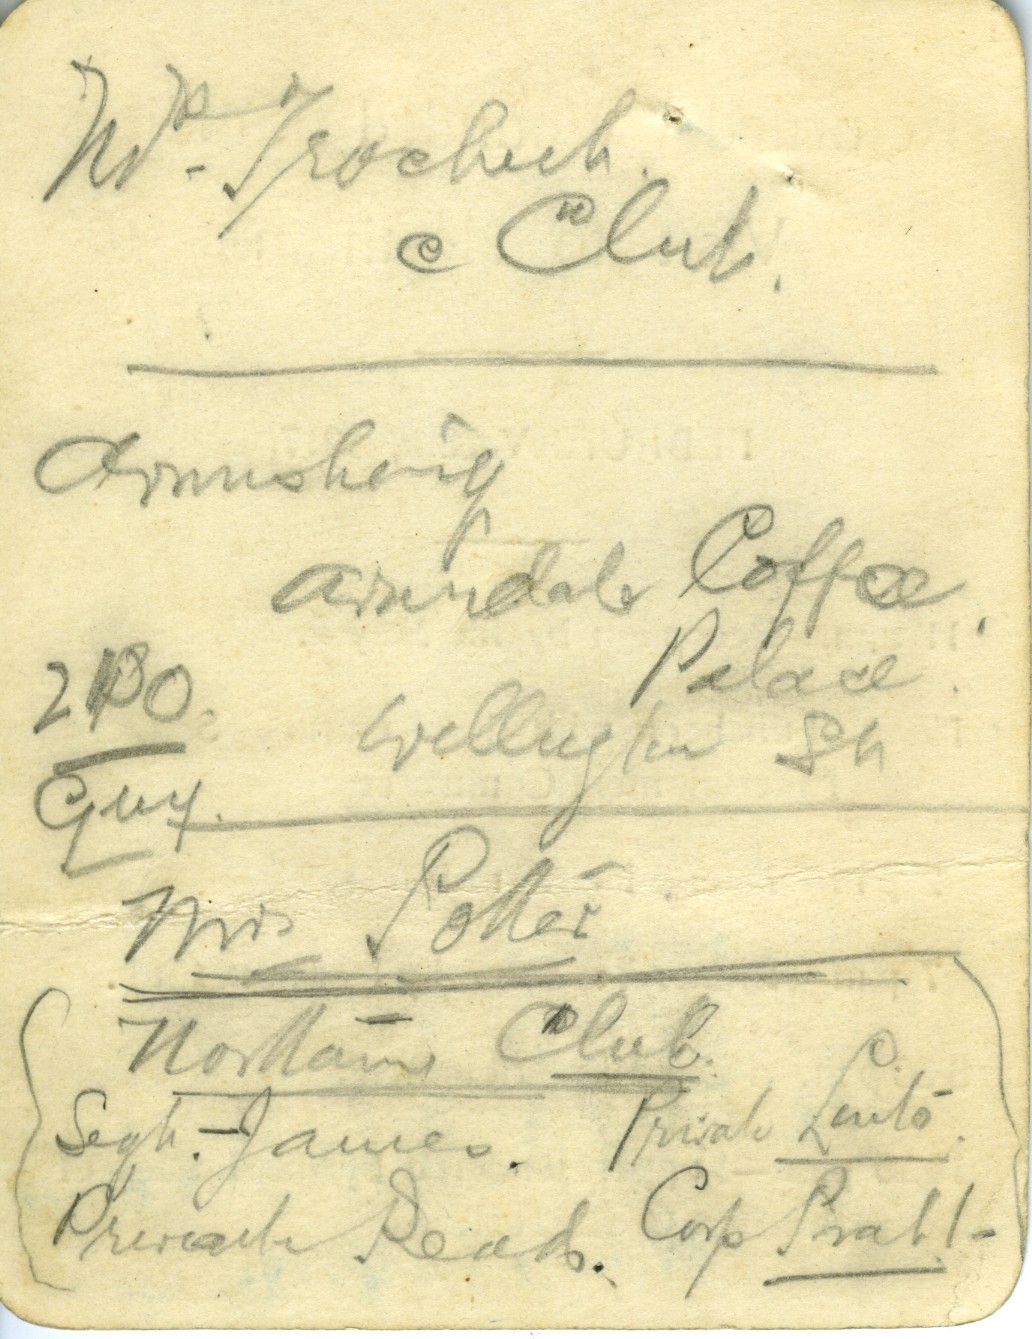 c Club.
Armstrong
Arundale Coffee
Palace
Wellington St
2 PO.
Guy.
Mrs Potter
Northam Club.
Sergt. James. Private
Private Read. Corp Pratt-